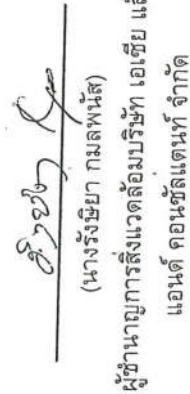 (นางรังษิยา กมลพนัส)
ผู้ชำนาญการสิ่งแวดล้อมบริษัท เอเชีย แล
แอนด์ คอนซัลแตนท์ จำกัด